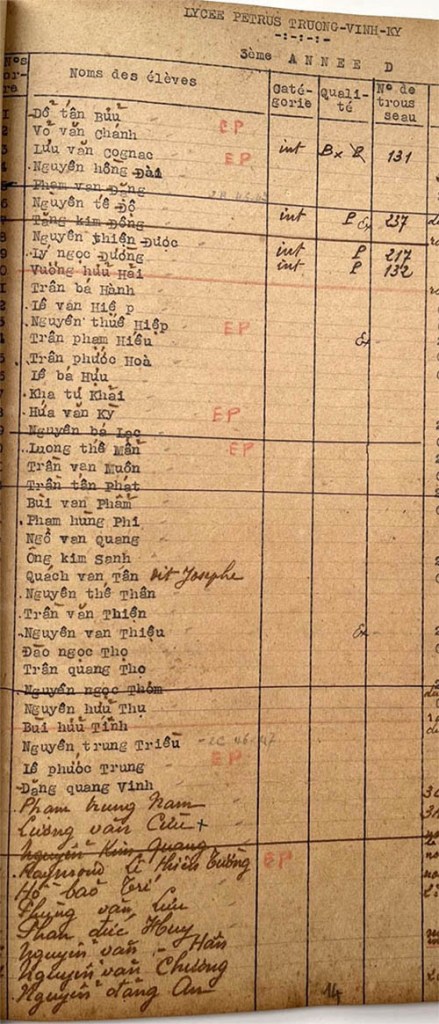 LYCEE PETRUS TRUONG-VINH-KY
-:-:-:-
3ème ANNEE D
Nos or-re
Noms des élèves
Caté-gorie
Quali-té
N° de trous seau
Đổ tấn Bửu
Võ văn Chánh EP
Lưu văn Cognac EP int Bx P 131
Nguyễn hồng Đài
Phạm van Đặng
Nguyễn tế Độ
Tăng kim Đồng int P Ex 237
Nguyễn thiện Được
Lý ngọc Đường int P 217
Vương hữu Hải int P 132
Trần bá Hành
Lê văn Hiệp
Nguyễn thúê Hiệp EP
Trần phạm Hiếu Ex
Trần phước Hoà
Lê bá Hựu
Kha tư Khải
Hứa văn Kỳ EP
Nguyễn bá Lạc
Luong thế Mẫn EP
Trần van Muôn
Trần tấn Phát
Bùi van Phẩm
Phạm hùng Phi
Ngô van Quang
Ông kim Sanh
Quách van Tân dit Josephe
Nguyễn thế Thân
Trần văn Thiện
Nguyễn van Thiệu Ex
Đào ngọc Thọ
Trần quang Thọ
Nguyễn ngọc Thơm
Nguyễn hữu Thụ
Bùi hữu Tính
Nguyễn trung Triều -2C 46-47
Lê phước Trung EP
Đặng quang Vinh
Phạm trung Nam
Lương văn Cửu +
Nguyễn Kim Quang
Raymond Lê thiên Tường EP
Hồ bảo Trí
Phùng văn Cửu
Phan đức Huy
Nguyễn văn Hân
Nguyễn văn Chương
Nguyễn đăng An
14